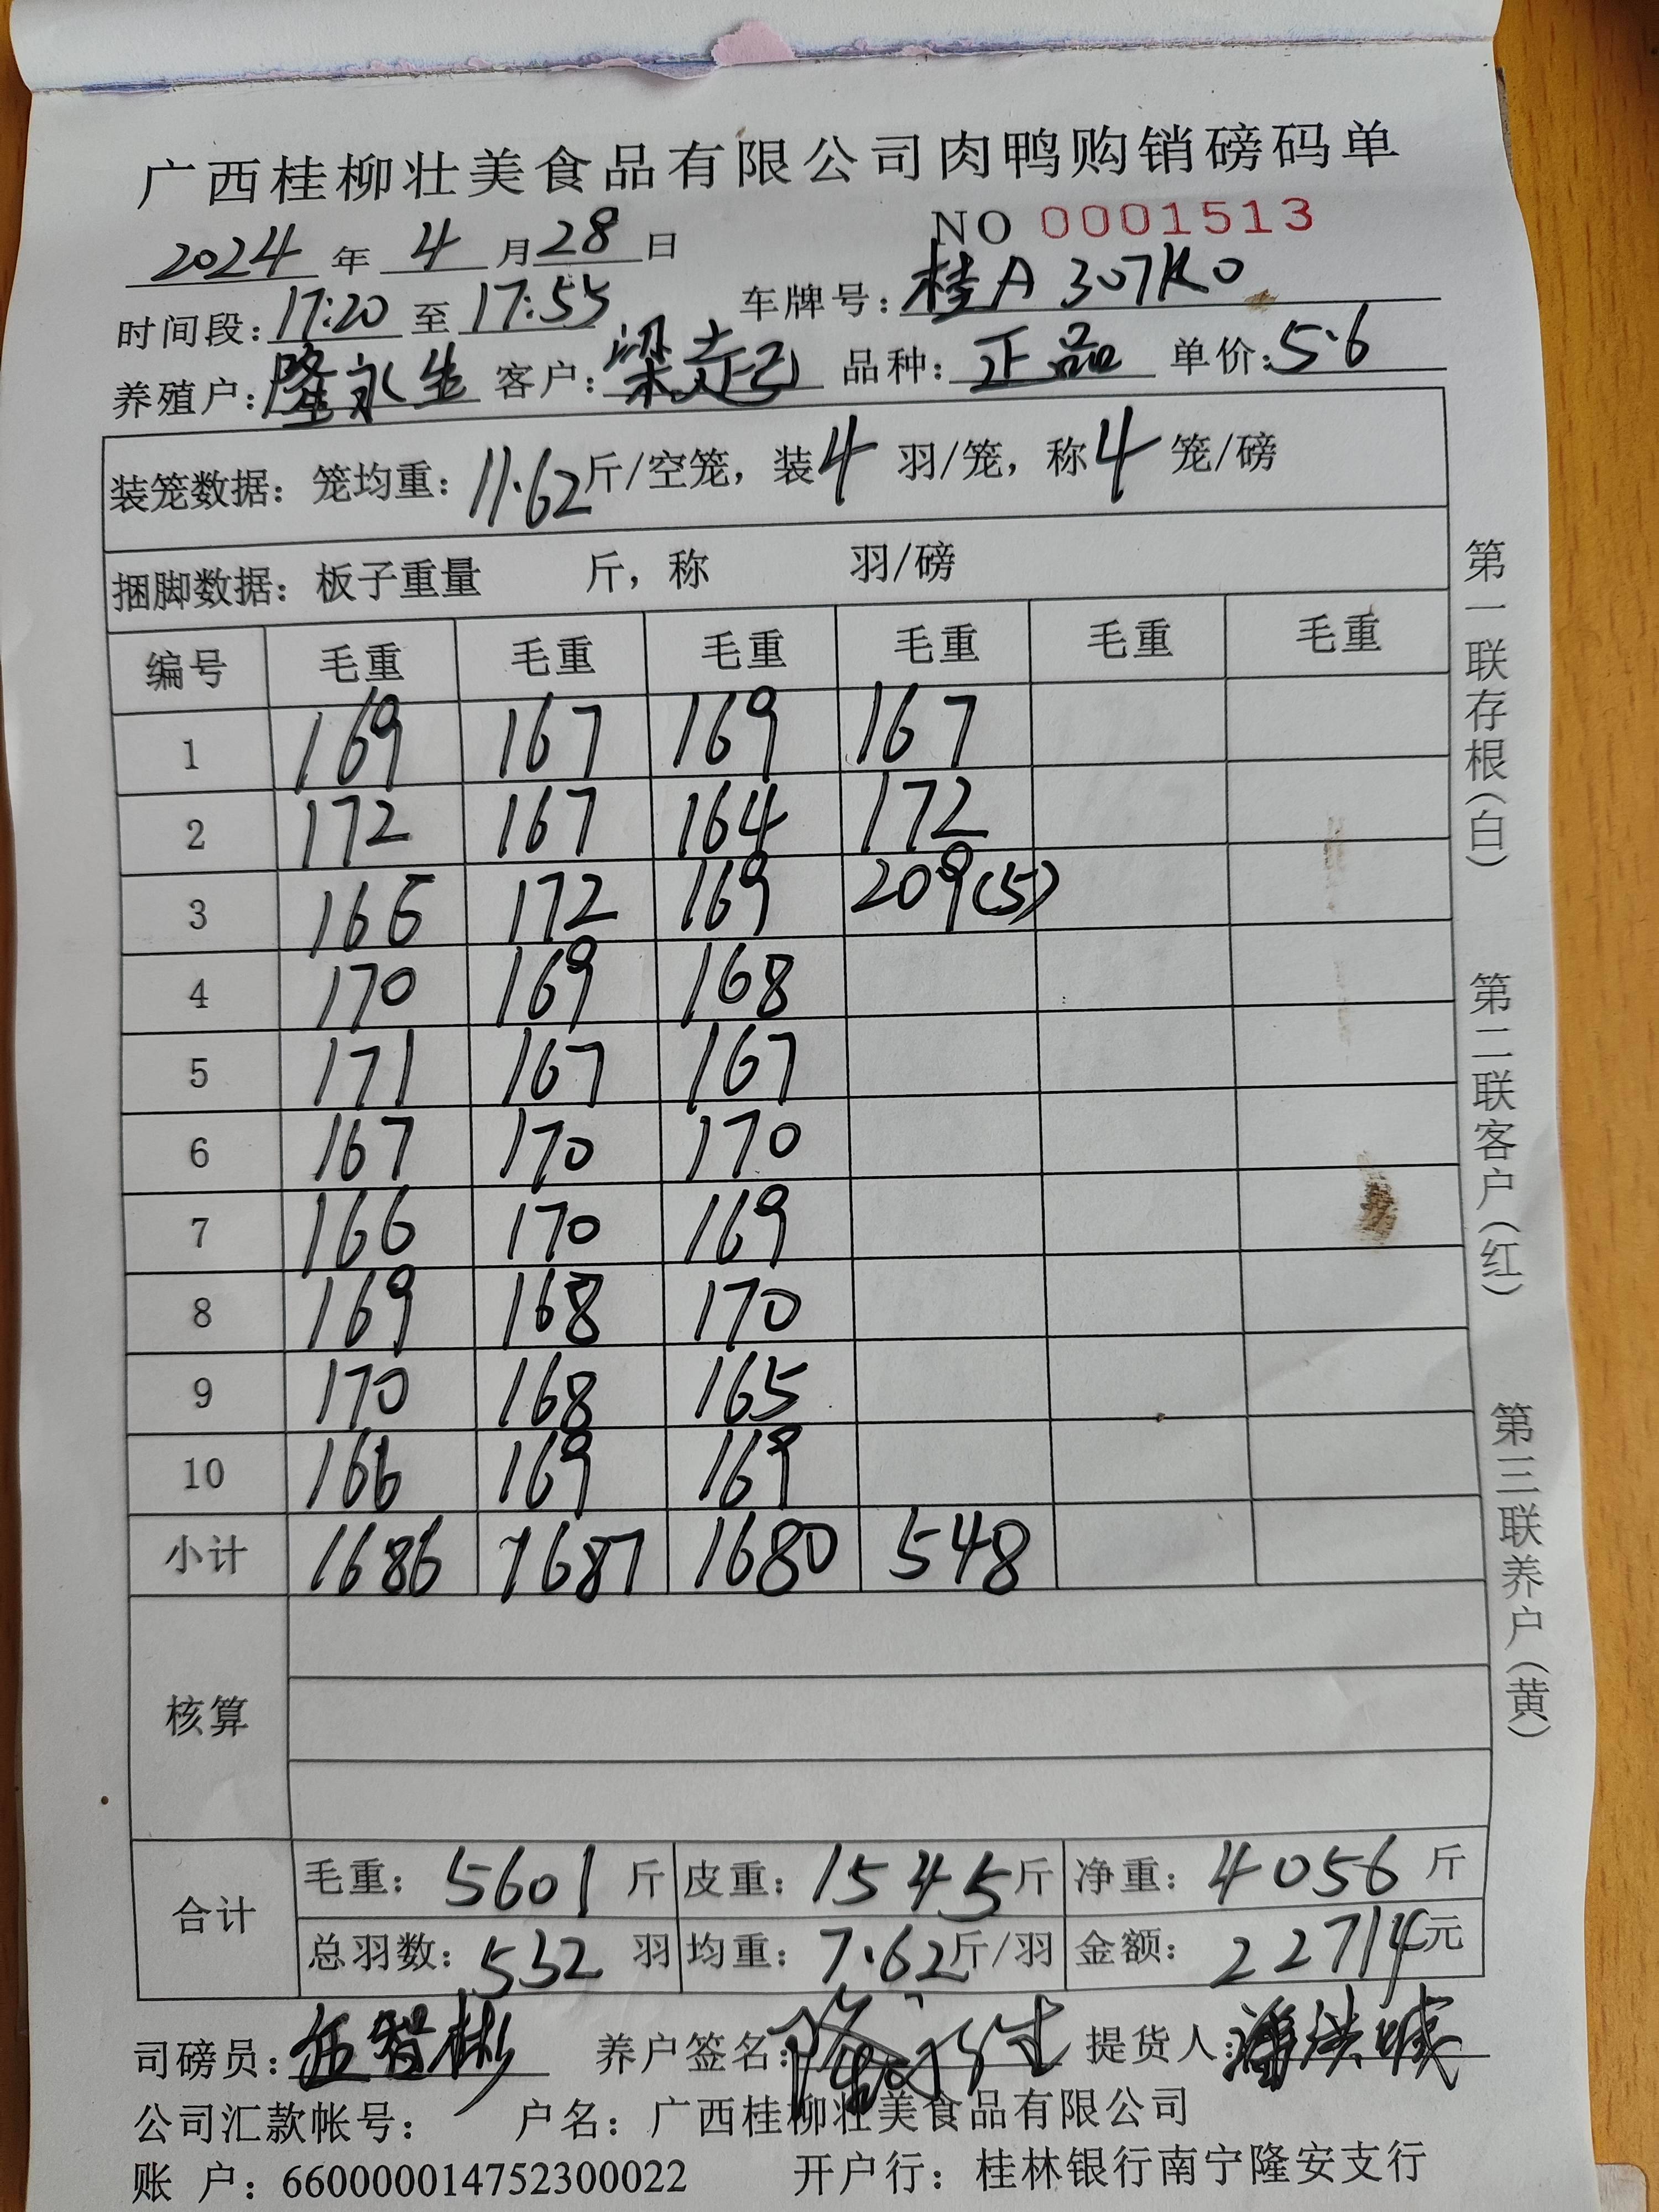 广西桂柳壮美食品有限公司肉鸭购销磅码单
NO 0001513
2024 年 4 月 28 日
时间段: 17:20 至 17:55 车牌号: 桂A 307K0
养殖户: 隆永生 客户: 梁起 品种: 正品 单价: 5.6
装笼数据: 笼均重: 11.62 斤/空笼, 装 4 羽/笼, 称 4 笼/磅
捆脚数据: 板子重量 斤, 称 羽/磅
编号 毛重 毛重 毛重 毛重 毛重 毛重
1 169 167 169 167
2 172 167 164 172
3 166 172 169 209(5)
4 170 169 168
5 171 167 167
6 167 170 170
7 166 170 169
8 169 168 170
9 170 168 165
10 166 169 169
小计 1686 1687 1680 548
核算
合计 毛重: 5601 斤 皮重: 1545 斤 净重: 4056 斤
总羽数: 532 羽 均重: 7.62 斤/羽 金额: 22714 元
司磅员: 伍智彬 养户签名: 隆永生 提货人:
公司汇款帐号: 户名: 广西桂柳壮美食品有限公司
账 户: 660000014752300022 开户行: 桂林银行南宁隆安支行
第一联存根(白)
第二联客户(红)
第三联养户(黄)